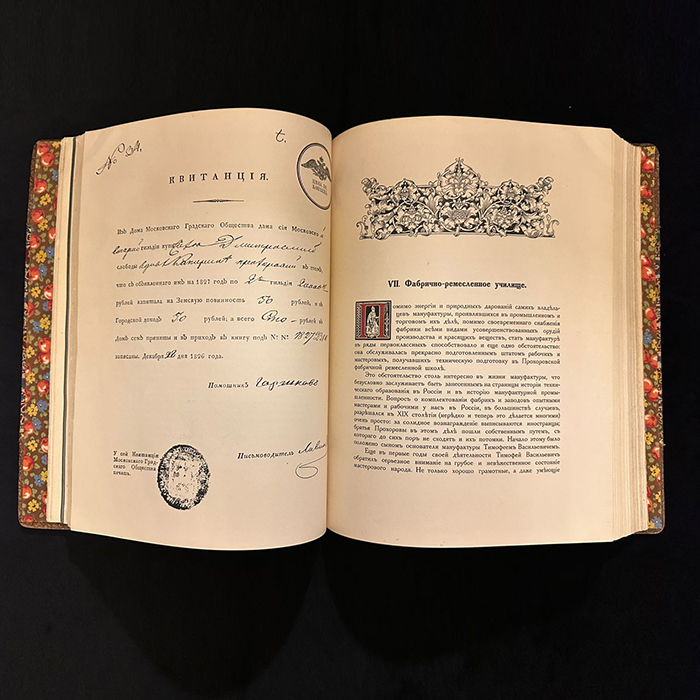 № 34.
КВИТАНЦІЯ.
Изъ Дома Московскаго Градскаго Общества дана сія Московской
гильдіи
слободы
что съ объявленнаго имъ на 1827 годъ по 2й гильдіи
рублей капитала на Земскую повинность 50 рублей, и въ
Городской доходъ 50 рублей; а всего рублей въ
Домѣ семъ приняты и въ приходъ въ книгу подъ №
записаны. Декабря дня 1826 года.
Помощникъ
Письмоводитель
У сей Квитанціи
Московскаго Град-
скаго Общества
печать.
VII. Фабрично-ремесленное училище.
Помимо энергіи и природныхъ дарованій самихъ владѣль-
цевъ мануфактуры, проявлявшихся въ промышленномъ и
торговомъ ихъ дѣлѣ, помимо своевременнаго снабженія
фабрики всѣми видами усовершенствованныхъ орудій
производства и красящихъ веществъ, стать мануфактурѣ
въ ряды первоклассныхъ способствовало и еще одно обстоятельство:
она обслуживалась прекрасно подготовленнымъ штатомъ рабочихъ и
мастеровыхъ, получавшихъ техническую подготовку въ Прохоровской
фабричной ремесленной школѣ.
Это обстоятельство столь интересно въ жизни мануфактуры, что
безусловно заслуживаетъ быть занесеннымъ на страницы исторіи техни-
ческаго образованія въ Россіи и въ исторію мануфактурной промышлен.
Вопросъ о комплектованіи фабрикъ и заводовъ опытными
мастерами и рабочими у насъ въ Россіи, въ большинствѣ случаевъ,
разрѣшался въ XIX столѣтіи (нерѣдко и теперь это дѣлается многими)
очень просто: за солидное вознагражденіе выписывались иностранцы;
братья Прохоровы въ этомъ дѣлѣ пошли собственнымъ путемъ, съ
котораго до сихъ поръ не сходятъ и ихъ потомки. Начало этому было
положено сыномъ основателя мануфактуры Тимофеемъ Васильевичемъ.
Еще въ первые годы своей дѣятельности Тимофей Васильевичъ
обратилъ серьезное вниманіе на грубое и невѣжественное состояніе
мастерового народа. Не только хорошо грамотные, а даже умѣвшіе